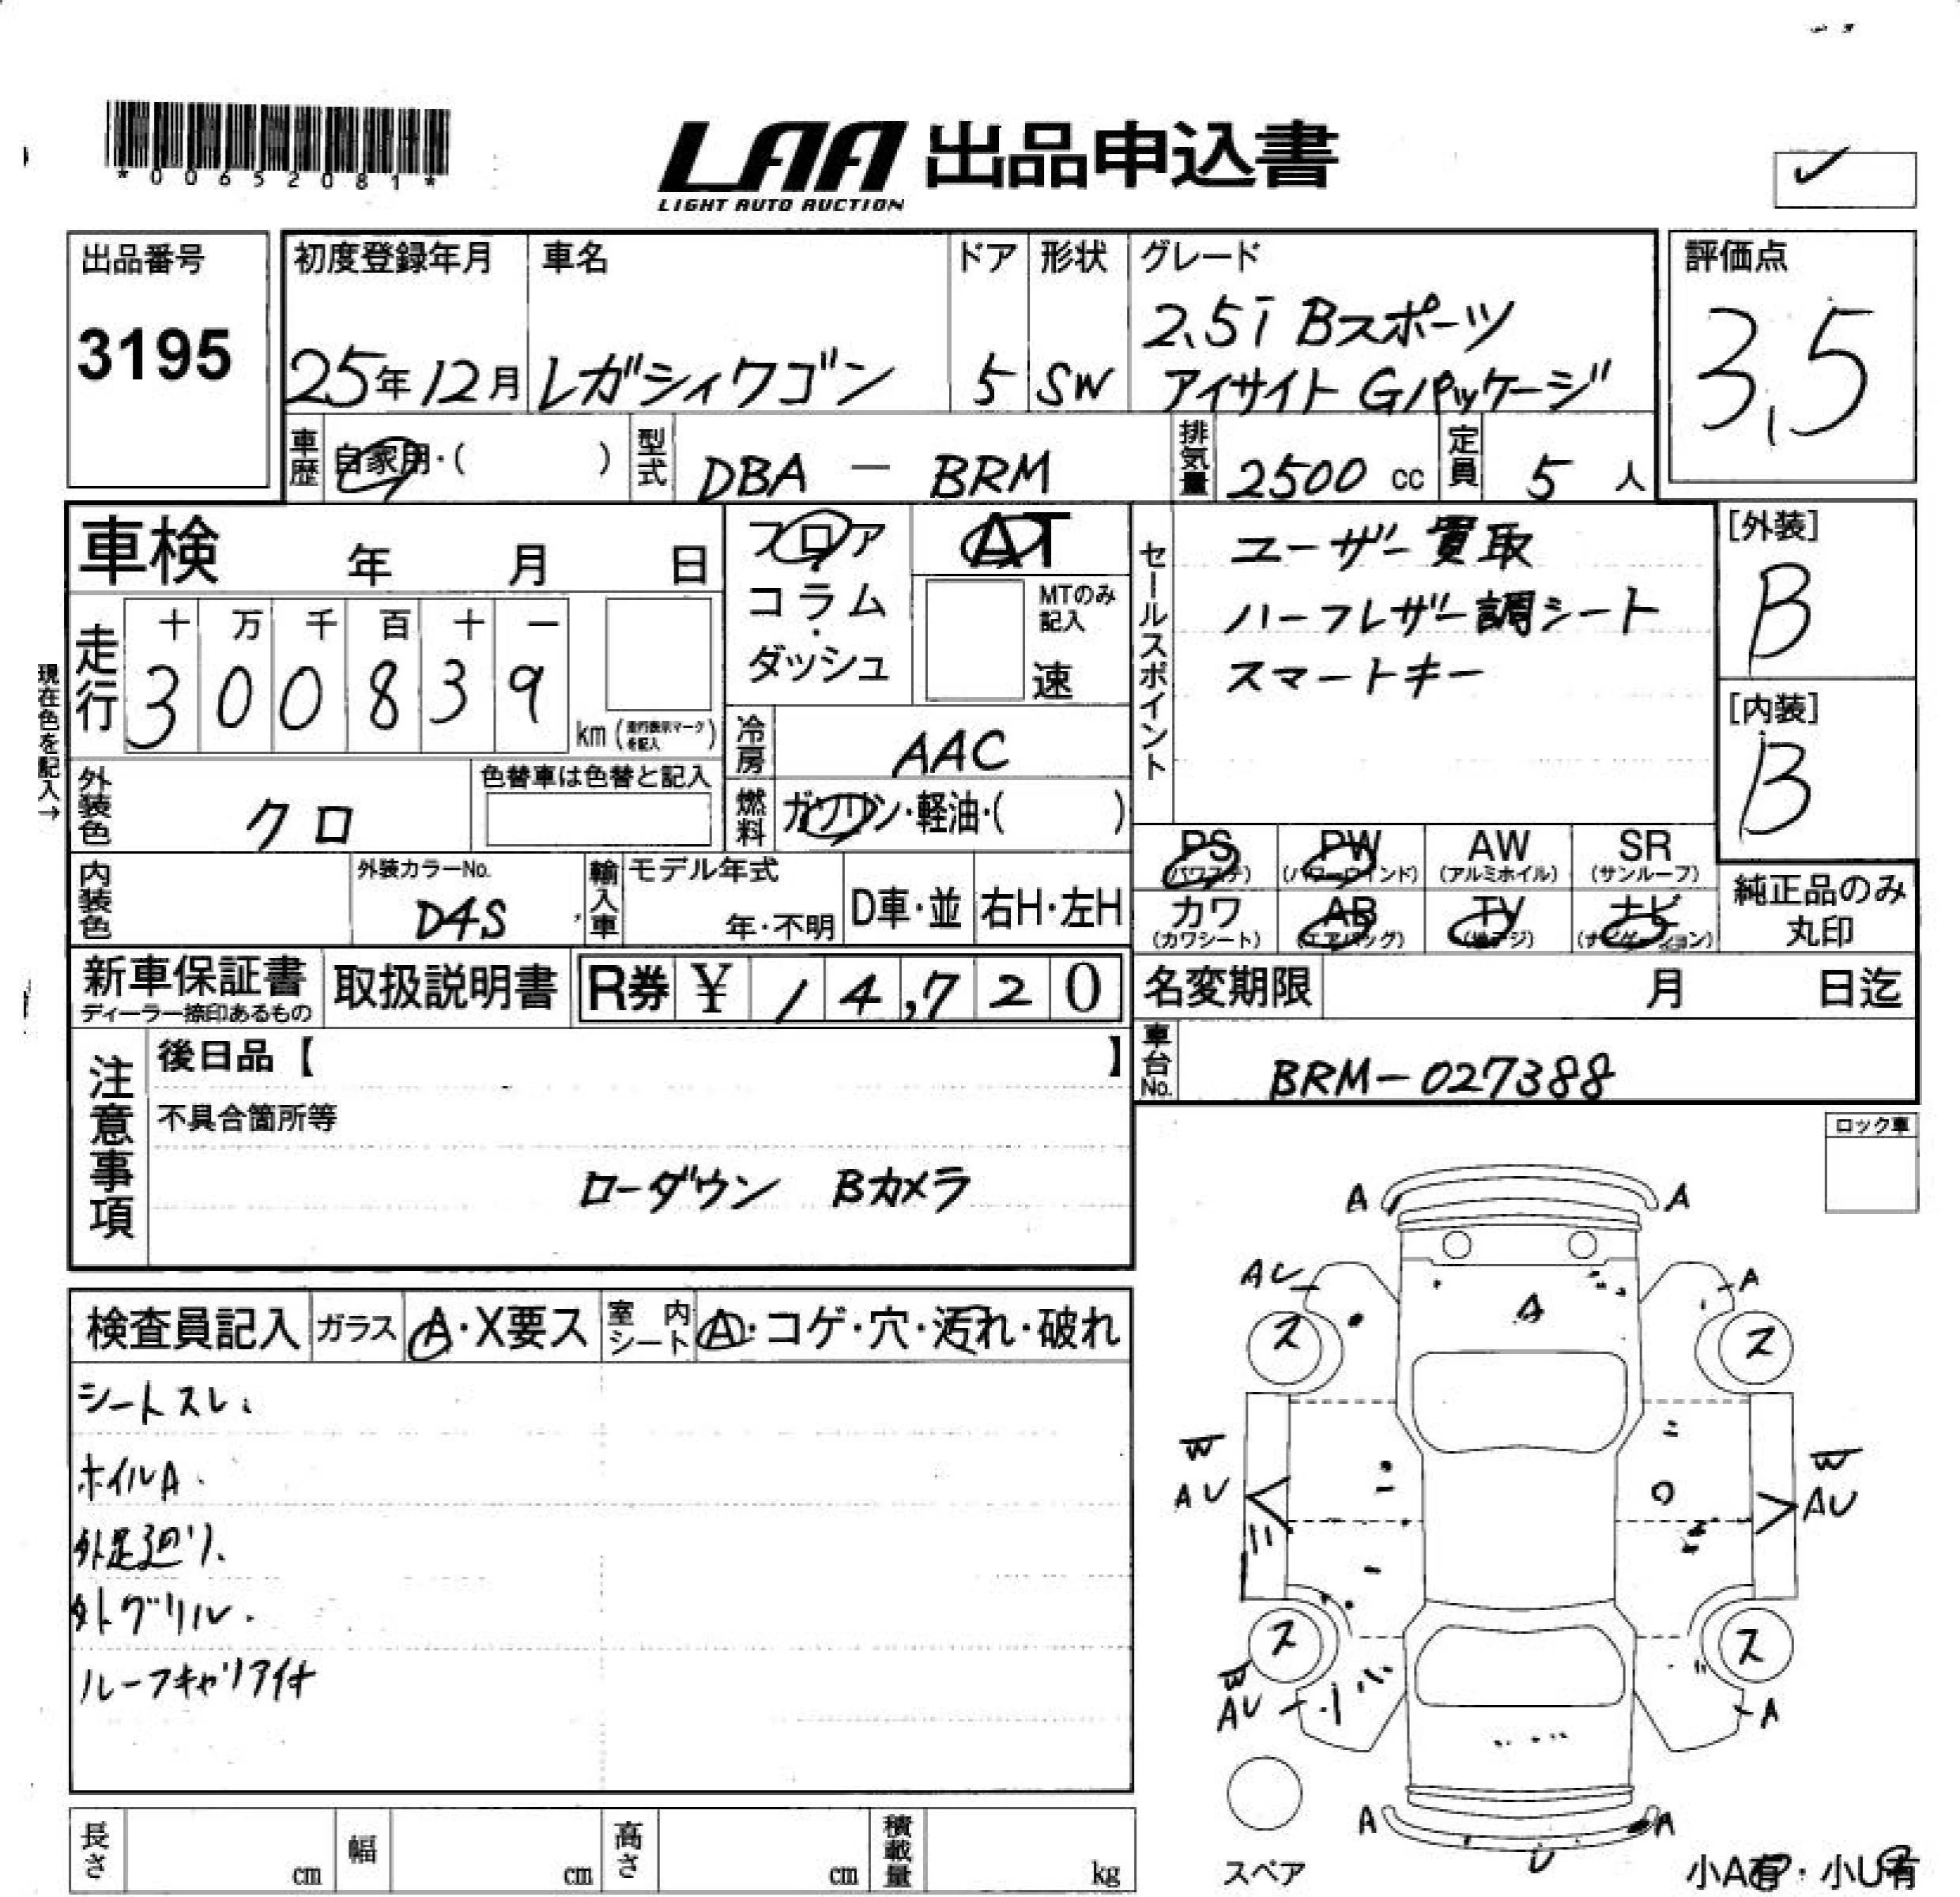 *00652081*
LAA 出品申込書
LIGHT AUTO AUCTION
出品番号
3195
初度登録年月
25年12月
車名
レガシィワゴン
ドア
5
形状
SW
グレード
2.5i Bスポーツ
アイサイト Gパッケージ
評価点
3.5
車歴 自家用・( )
型式 DBA - BRM
排気量 2500 cc
定員 5 人
車検 年 月 日
フロア
コラム
・
ダッシュ
AT
MTのみ
記入
速
セールスポイント
ユーザー買取
ハーフレザー調シート
スマートキー
[外装]
B
[内装]
B
現在色を記入→
走行
十 万 千 百 十 一
3 0 0 8 3 9
km (走行表示マークを記入)
冷房 AAC
外装色 クロ
色替車は色替と記入
燃料 ガソリン・軽油・( )
PS (パワステ)
PW (パワーウインド)
AW (アルミホイル)
SR (サンルーフ)
カワ (カワシート)
AB (エアバッグ)
TV (テレビ)
ナビ (ナビゲーション)
純正品のみ
丸印
内装色
外装カラーNo.
D4S
輸入車
モデル年式
年・不明
D車・並
右H・左H
新車保証書
ディーラー捺印あるもの
取扱説明書
R券 ¥ 14,720
名変期限 月 日迄
車台No. BRM-027388
注意事項
後日品【 】
不具合箇所等
ローダウン Bカメラ
ロック車
検査員記入
ガラス A・X要ス
室内シート A・コゲ・穴・汚れ・破れ
シートスレ.
ホイルA.
外足廻り.
外グリル.
ルーフキャリア付
A A
AU A
A
ス ス
W W
AU AU
ス ス
W
AU A
A A
U
スペア
小A有・小U有
長さ cm
幅 cm
高さ cm
積載量 kg